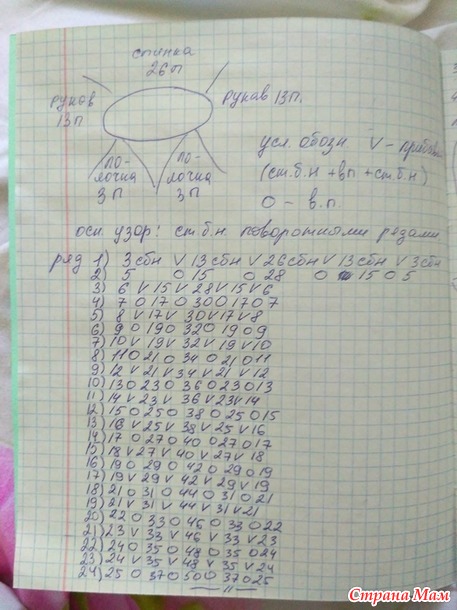 спинка
26 п
рукав
13 п
рукав 13 п.
по-
лочка
3 п
по-
лочка
3 п
усл. обозн V - прибавка
(ст.б.н + вп + ст.б.н)
О - в.п.
осн. узор: ст.б.н. поворотными рядами
ряд 1) 3 сбн V 13 сбн V 26 сбн V 13 сбн V 3 сбн
2) 5 О 15 О 28 О 15 О 5
3) 6 V 15 V 28 V 15 V 6
4) 7 О 17 О 30 О 17 О 7
5) 8 V 17 V 30 V 17 V 8
6) 9 О 19 О 32 О 19 О 9
7) 10 V 19 V 32 V 19 V 10
8) 11 О 21 О 34 О 21 О 11
9) 12 V 21 V 34 V 21 V 12
10) 13 О 23 О 36 О 23 О 13
11) 14 V 23 V 36 V 23 V 14
12) 15 О 25 О 38 О 25 О 15
13) 16 V 25 V 38 V 25 V 16
14) 17 О 27 О 40 О 27 О 17
15) 18 V 27 V 40 V 27 V 18
16) 19 О 29 О 42 О 29 О 19
17) 19 V 29 V 42 V 29 V 19
18) 21 О 31 О 44 О 31 О 21
19) 21 V 31 V 44 V 31 V 21
20) 22 О 33 О 46 О 33 О 22
21) 23 V 33 V 46 V 33 V 23
22) 24 О 35 О 48 О 35 О 24
23) 24 V 35 V 48 V 35 V 24
24) 25 О 37 О 50 О 37 О 25
— 〃 —
Страна Мам